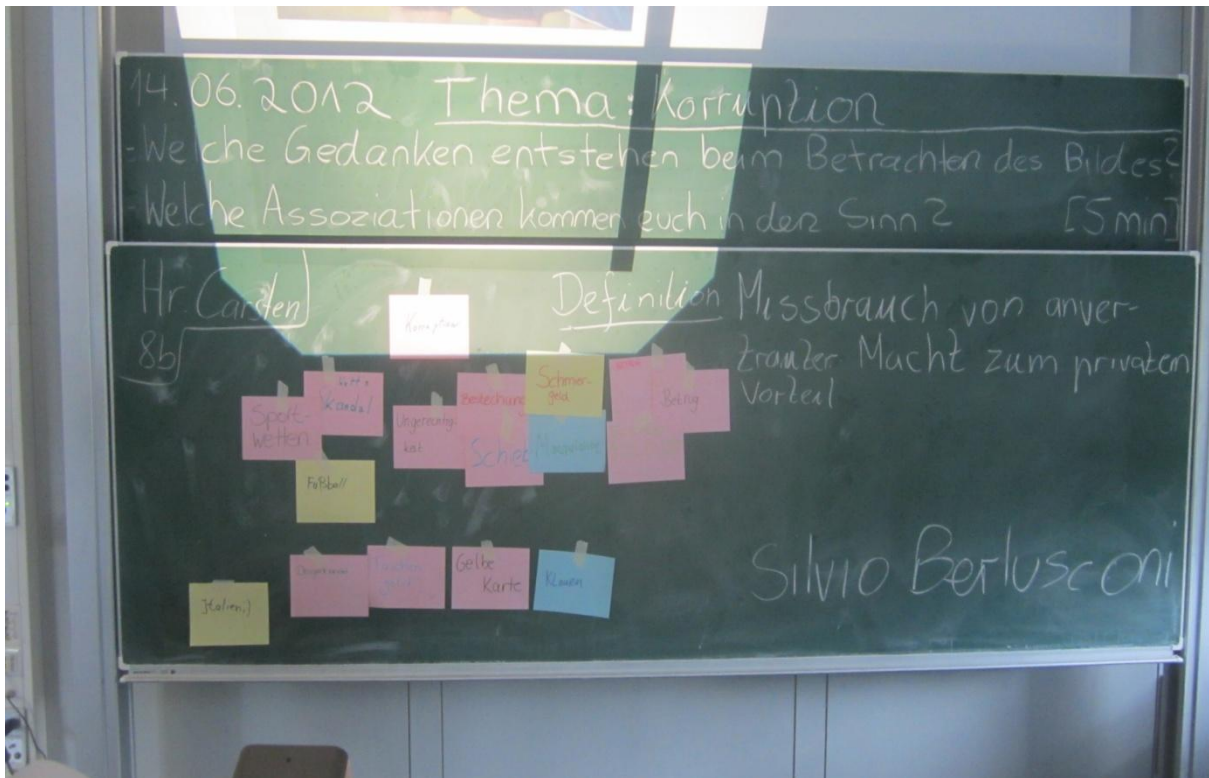 14.06.2012 Thema: Korruption
- Welche Gedanken entstehen beim Betrachten des Bildes?
- Welche Assoziationen kommen euch in den Sinn? [5 min]
Hr. Carsten
8b
Korruption
Definition
Missbrauch von anver-
trauter Macht zum privaten
Vorteil
Sport-
wetten
Fußball
Ungerechtig-
keit
Bestechung
Schmier-
geld
Betrug
Italien
Gelbe
Karte
Klauen
Silvio Berlusconi